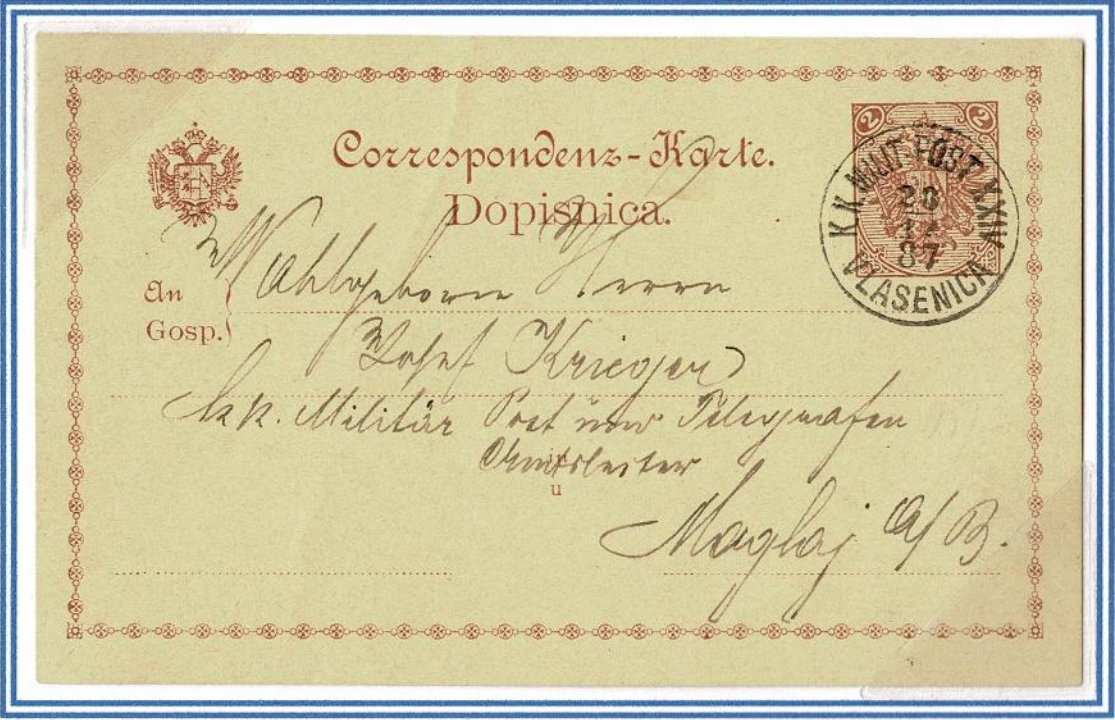 Correspondenz-Karte.
Dopisnica.
2 2
K.K. MILIT. POST XXIV
28
12
87
VLASENICA
An
Gosp.
Wohlgeborn Herrn
Josef Krieger
k.k. Militär Post und Telegrafen
Amtsleiter
in
u
Maglaj a/B.